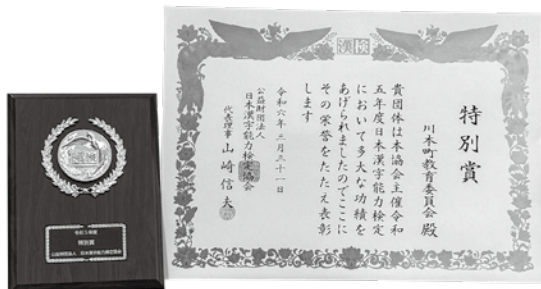 漢検
特別賞
川本町教育委員会 殿
貴団体は本協会主催令和
五年度日本漢字能力検定
において多大な功績を
あげられましたのでここに
その栄誉をたたえ表彰
します
令和六年三月三十一日
公益財団法人
日本漢字能力検定協会
代表理事 山崎信夫
漢検
令和5年度
特別賞
公益財団法人 日本漢字能力検定協会